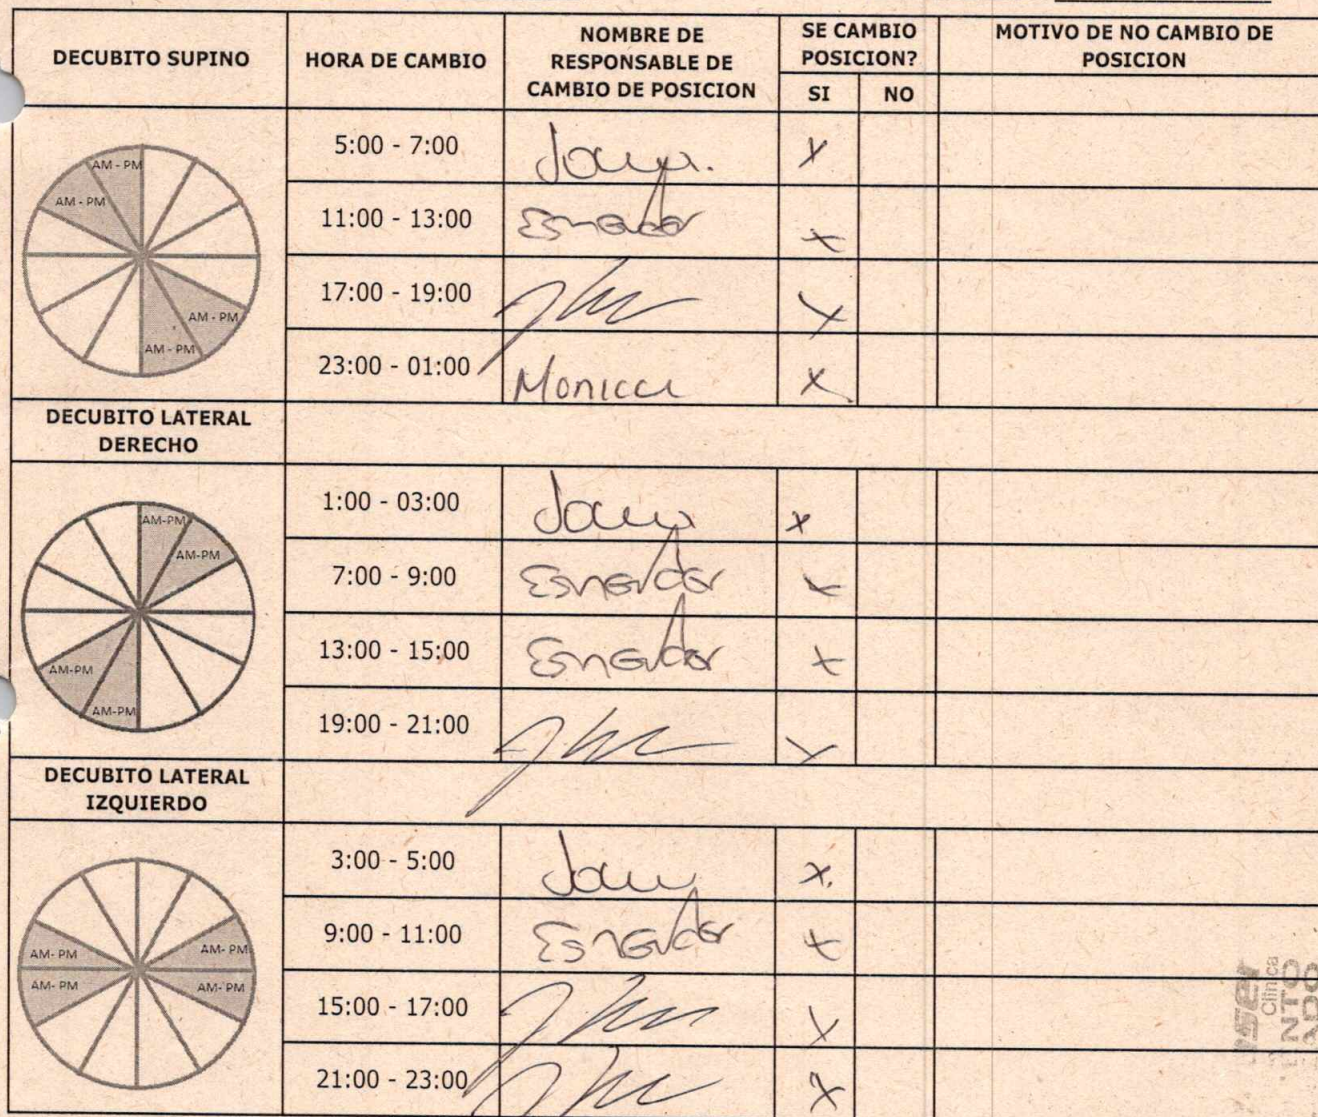 DECUBITO SUPINO HORA DE CAMBIO NOMBRE DE RESPONSABLE DE CAMBIO DE POSICION SE CAMBIO POSICION? MOTIVO DE NO CAMBIO DE POSICION
SI NO
AM - PM
AM - PM
AM - PM
AM - PM
5:00 - 7:00 X
11:00 - 13:00 X
17:00 - 19:00 X
23:00 - 01:00 Monica X
DECUBITO LATERAL
DERECHO
AM-PM
AM-PM
AM-PM
AM-PM
1:00 - 03:00 X
7:00 - 9:00 X
13:00 - 15:00 X
19:00 - 21:00 X
DECUBITO LATERAL
IZQUIERDO
AM- PM AM- PM
AM- PM AM- PM
3:00 - 5:00 X
9:00 - 11:00 X
15:00 - 17:00 X
21:00 - 23:00 X
Clínica